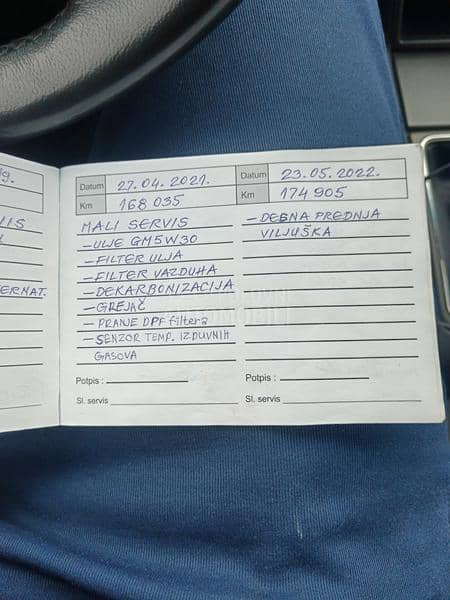 9.
Datum 27.04.2021.
Km 168 035
MALI SERVIS
- ULJE GM5W30
- FILTER ULJA
- FILTER VAZDUHA
- DEKARBONIZACIJA
- GREJAČ
- PRANJE DPF filtera
- SENZOR TEMP. IZDUVNIH
GASOVA
Potpis:
Sl. servis
Datum 23.05.2022.
Km 174 905
- DESNA PREDNJA
VILJUŠKA
Potpis:
Sl. servis